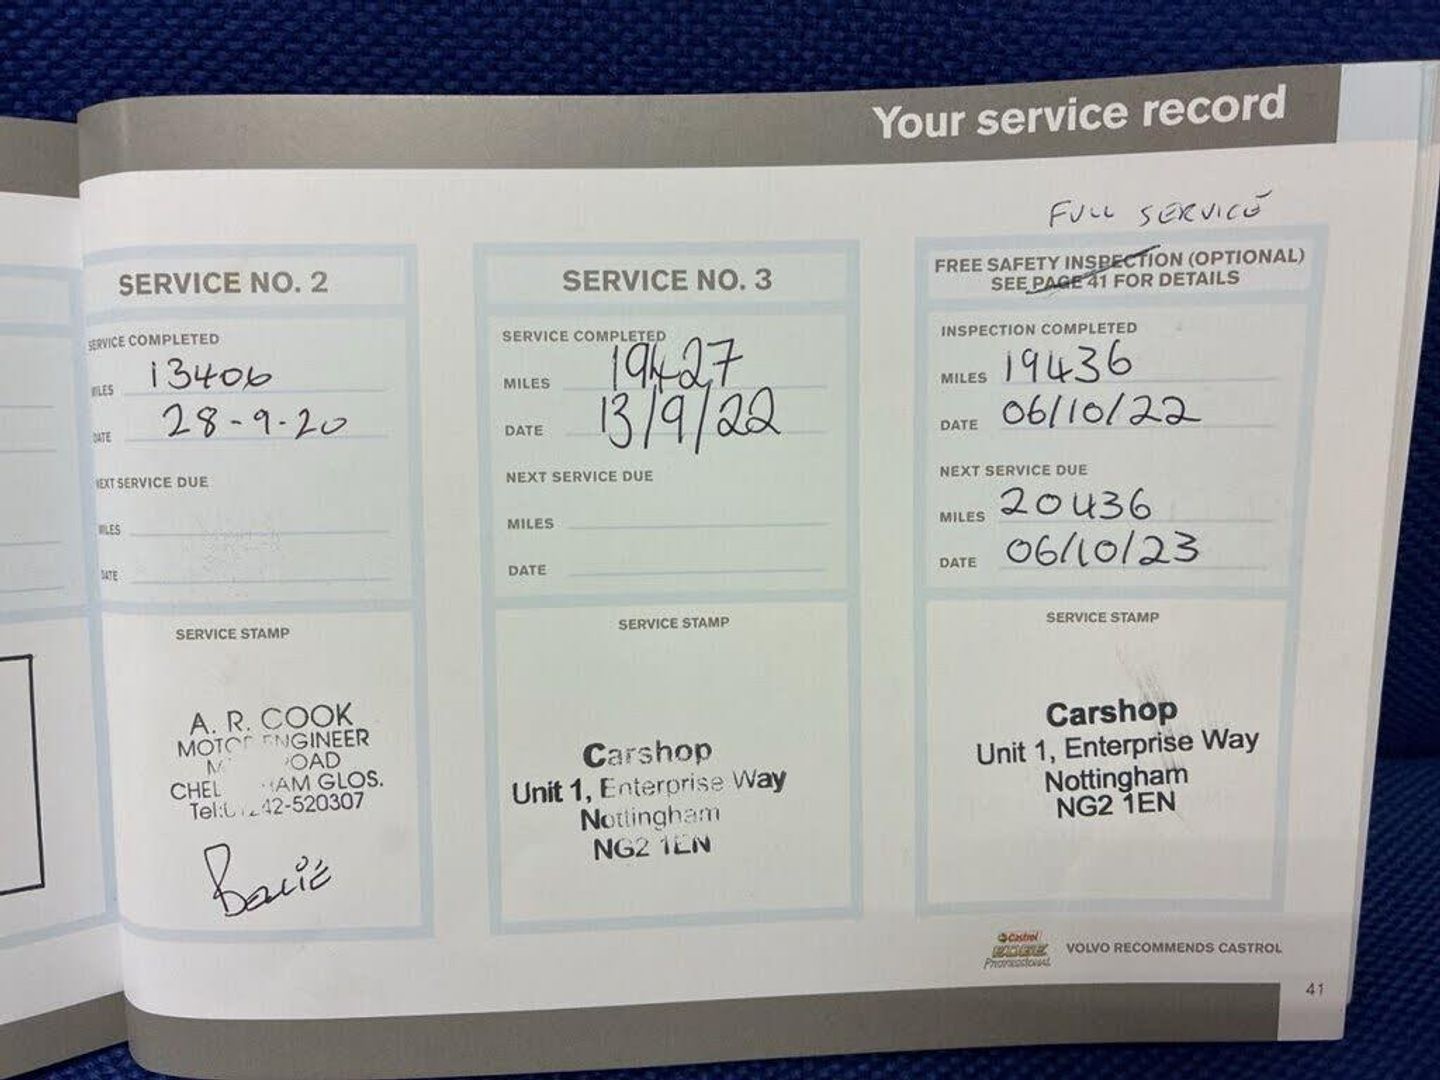 Your service record
SERVICE NO. 2
SERVICE COMPLETED
MILES 13406
DATE 28-9-20
NEXT SERVICE DUE
MILES
DATE
SERVICE STAMP
A. R. COOK
MOTOR ENGINEER
GLOS.
520307
SERVICE NO. 3
SERVICE COMPLETED
MILES 19427
DATE 13/9/22
NEXT SERVICE DUE
MILES
DATE
SERVICE STAMP
Carshop
Unit 1, Enterprise Way
Nottingham
NG2 1EN
FULL SERVICE
FREE SAFETY INSPECTION (OPTIONAL)
SEE PAGE 41 FOR DETAILS
INSPECTION COMPLETED
MILES 19436
DATE 06/10/22
NEXT SERVICE DUE
MILES 20436
DATE 06/10/23
SERVICE STAMP
Carshop
Unit 1, Enterprise Way
Nottingham
NG2 1EN
Castrol
EDGE
Professional
VOLVO RECOMMENDS CASTROL
41